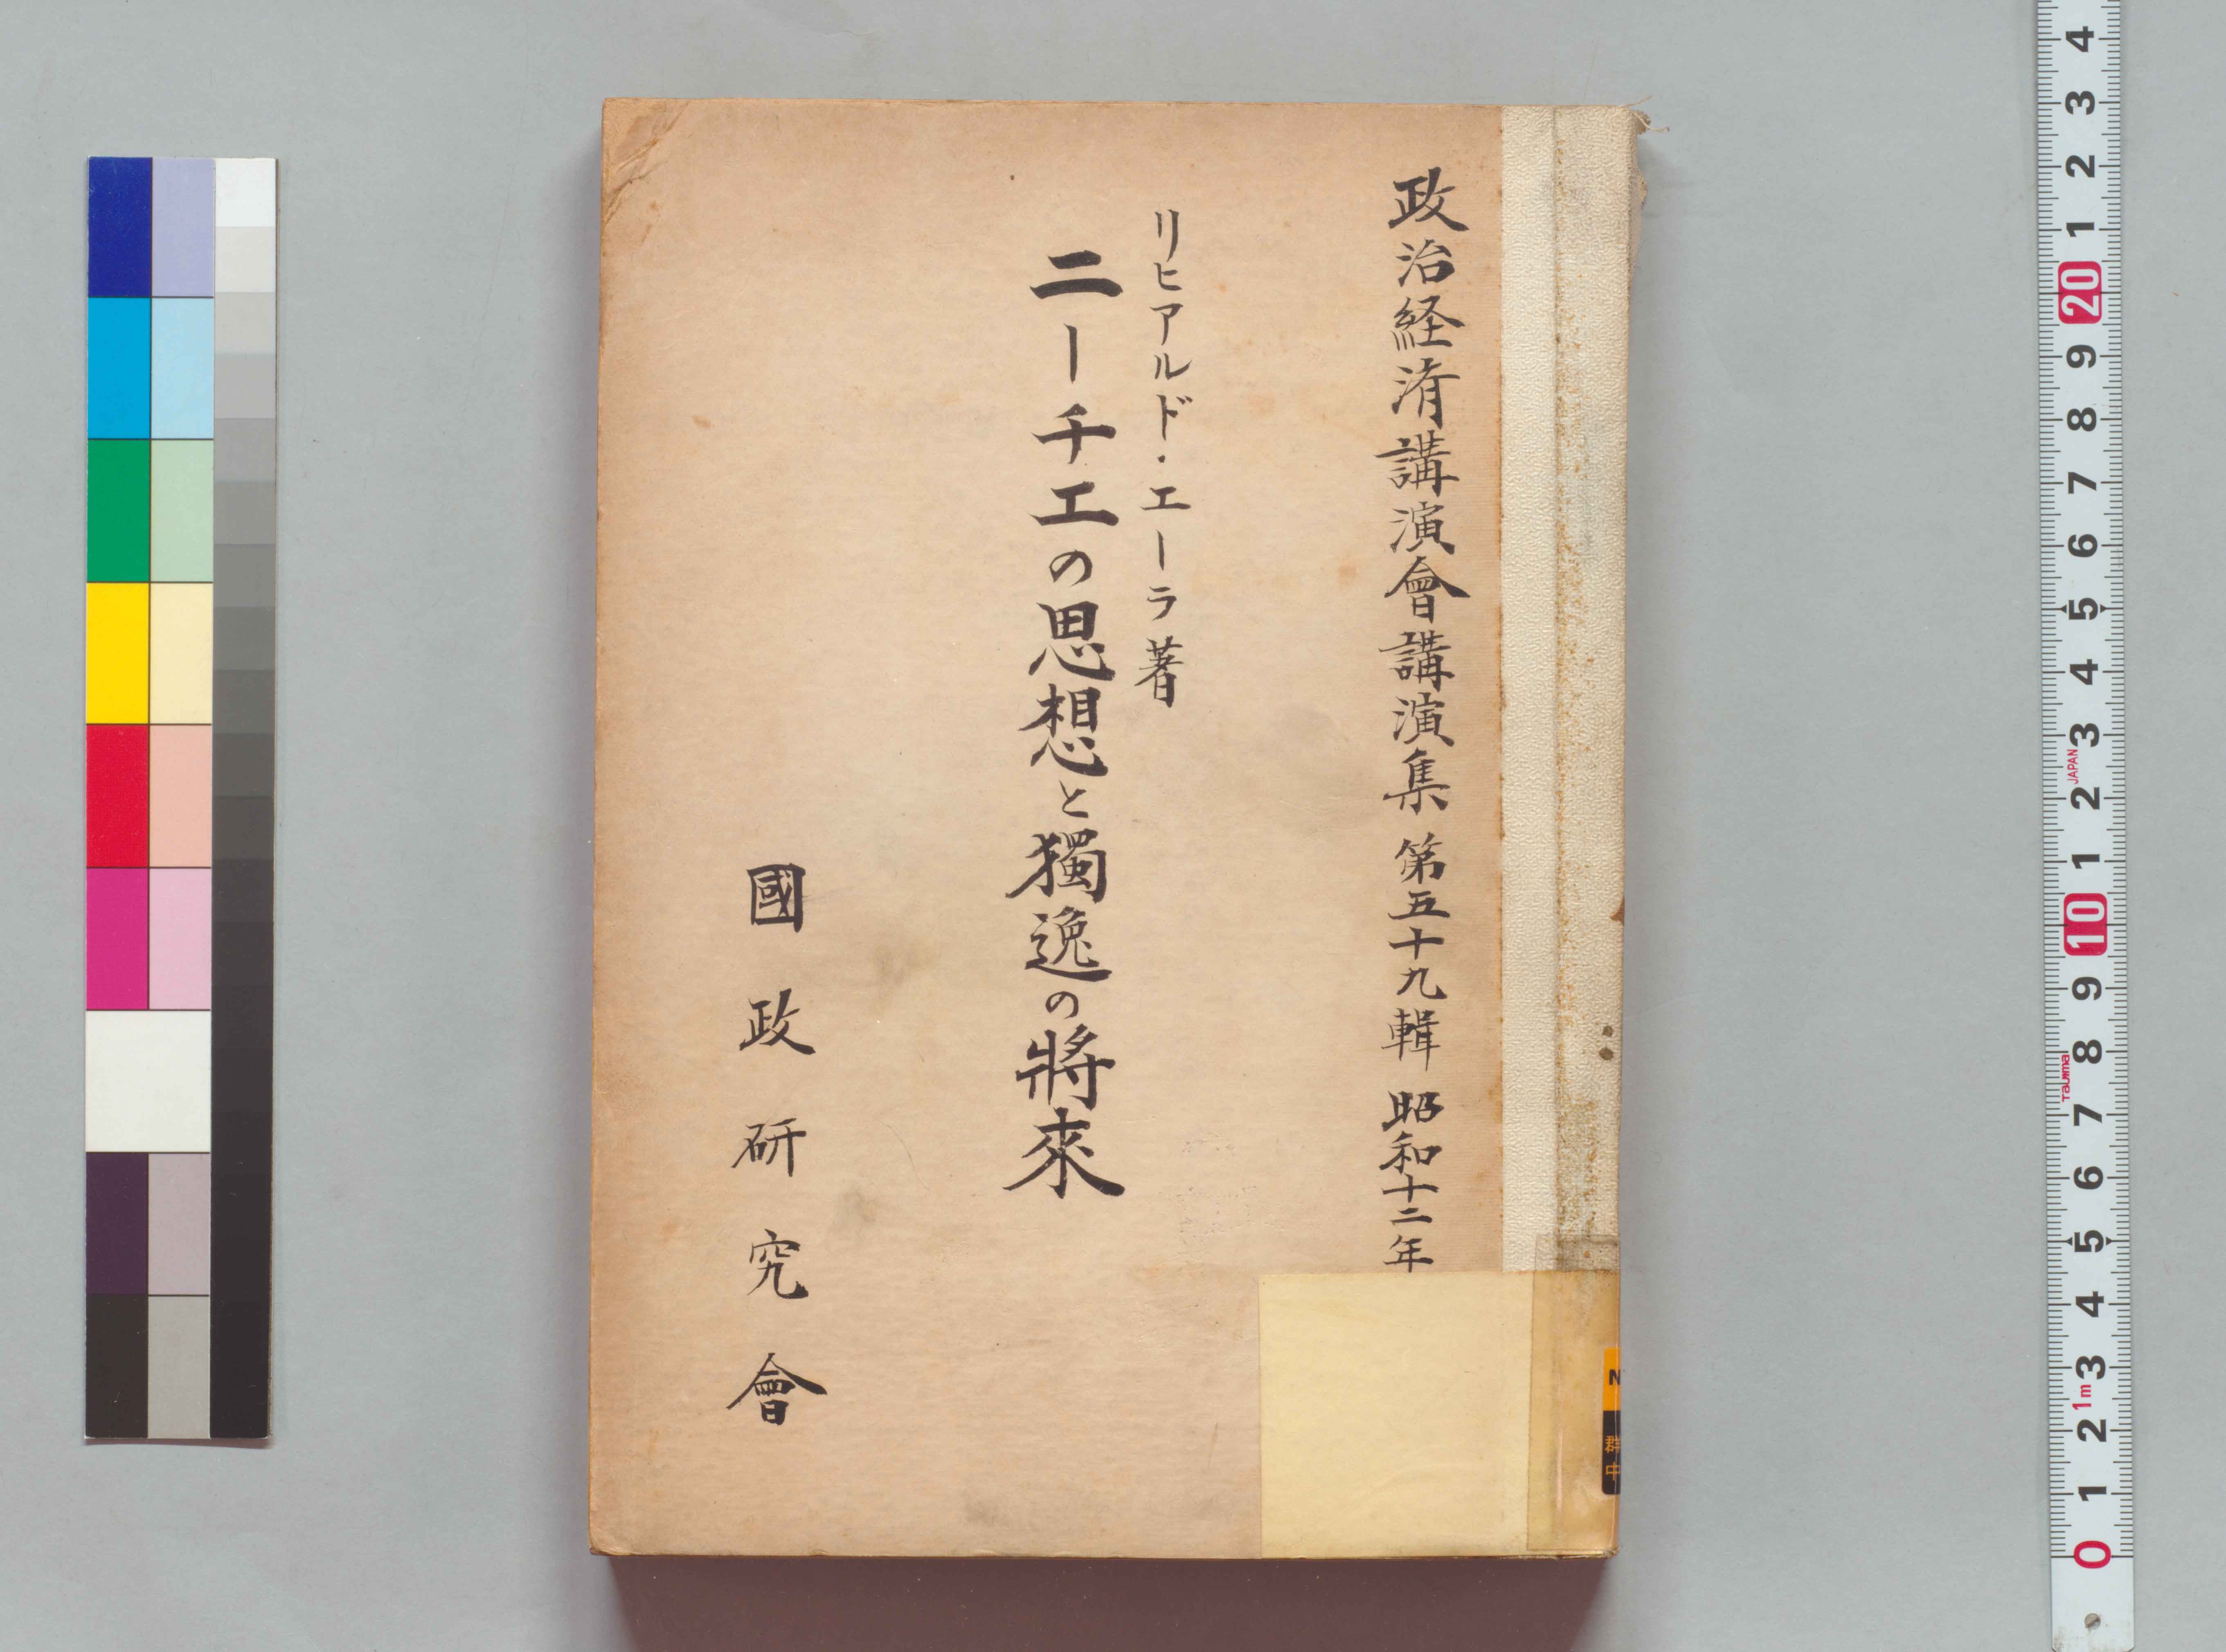 政治経済講演會講演集 第五十九輯 昭和十二年
リヒアルド・エーラ著
ニーチエの思想と獨逸の將來
國政研究會
4
3
2
1
20
9
8
7
6
5
4
3
JAPAN
2
1
10
9
8
Tajima
7
6
5
4
3
1m
2
1
0
N
群
中